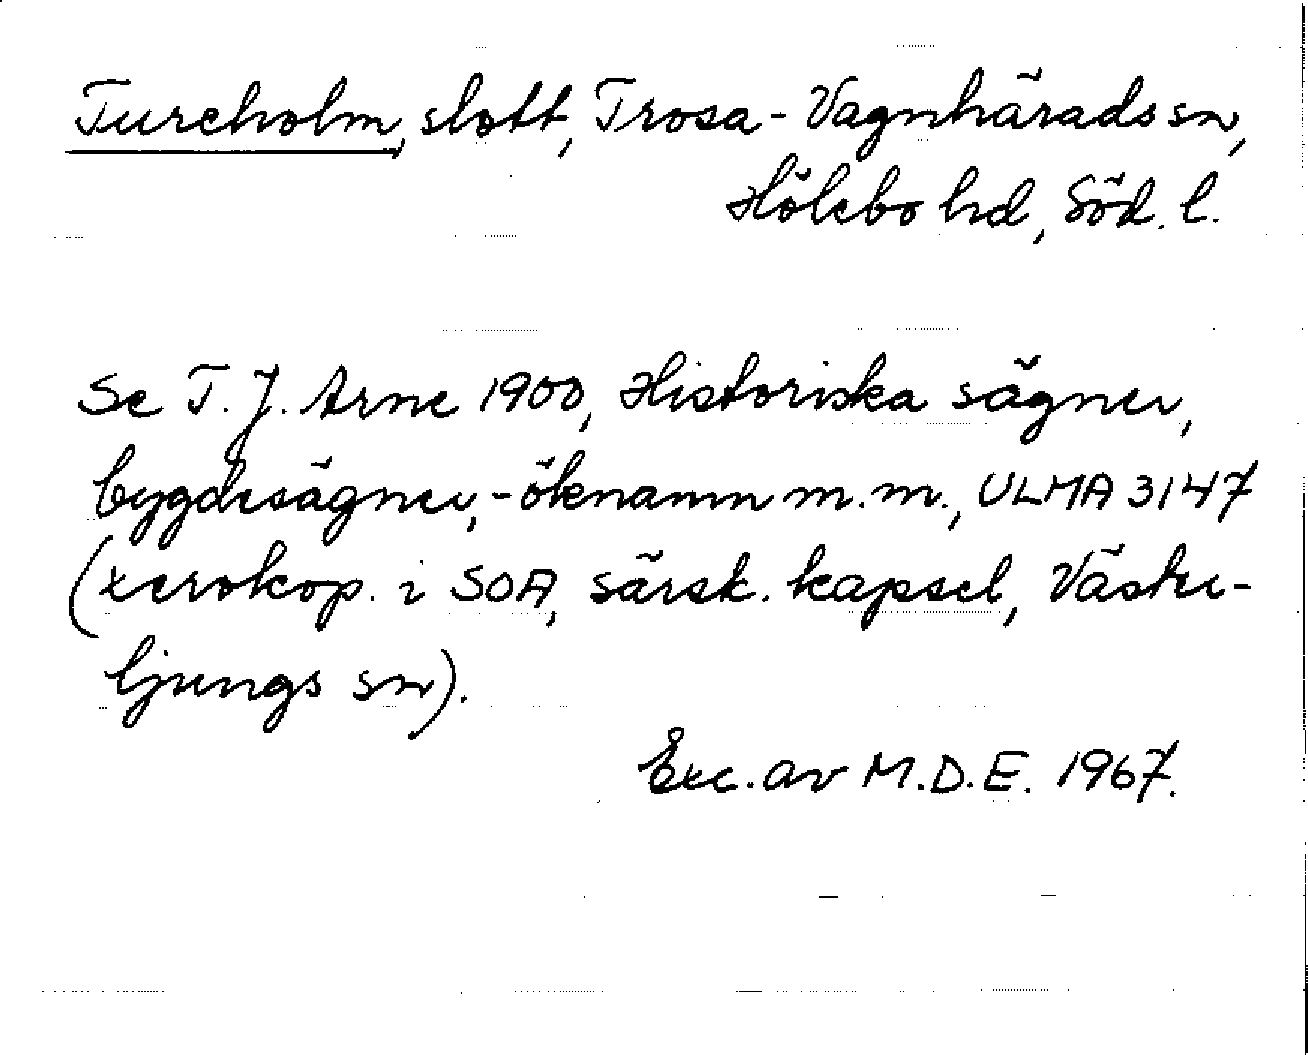 Tureholm, slott, Trosa-Vagnhärads sn,
Hölebo hd, Söd. l.
Se T. J. Arne 1900, Historiska sägner,
bygdesägner, -öknamn m.m., ULMA 3147
(xerokop. i SOA, särsk. kapsel, Väster-
ljungs sn).
Exc. av M.D.E. 1967.